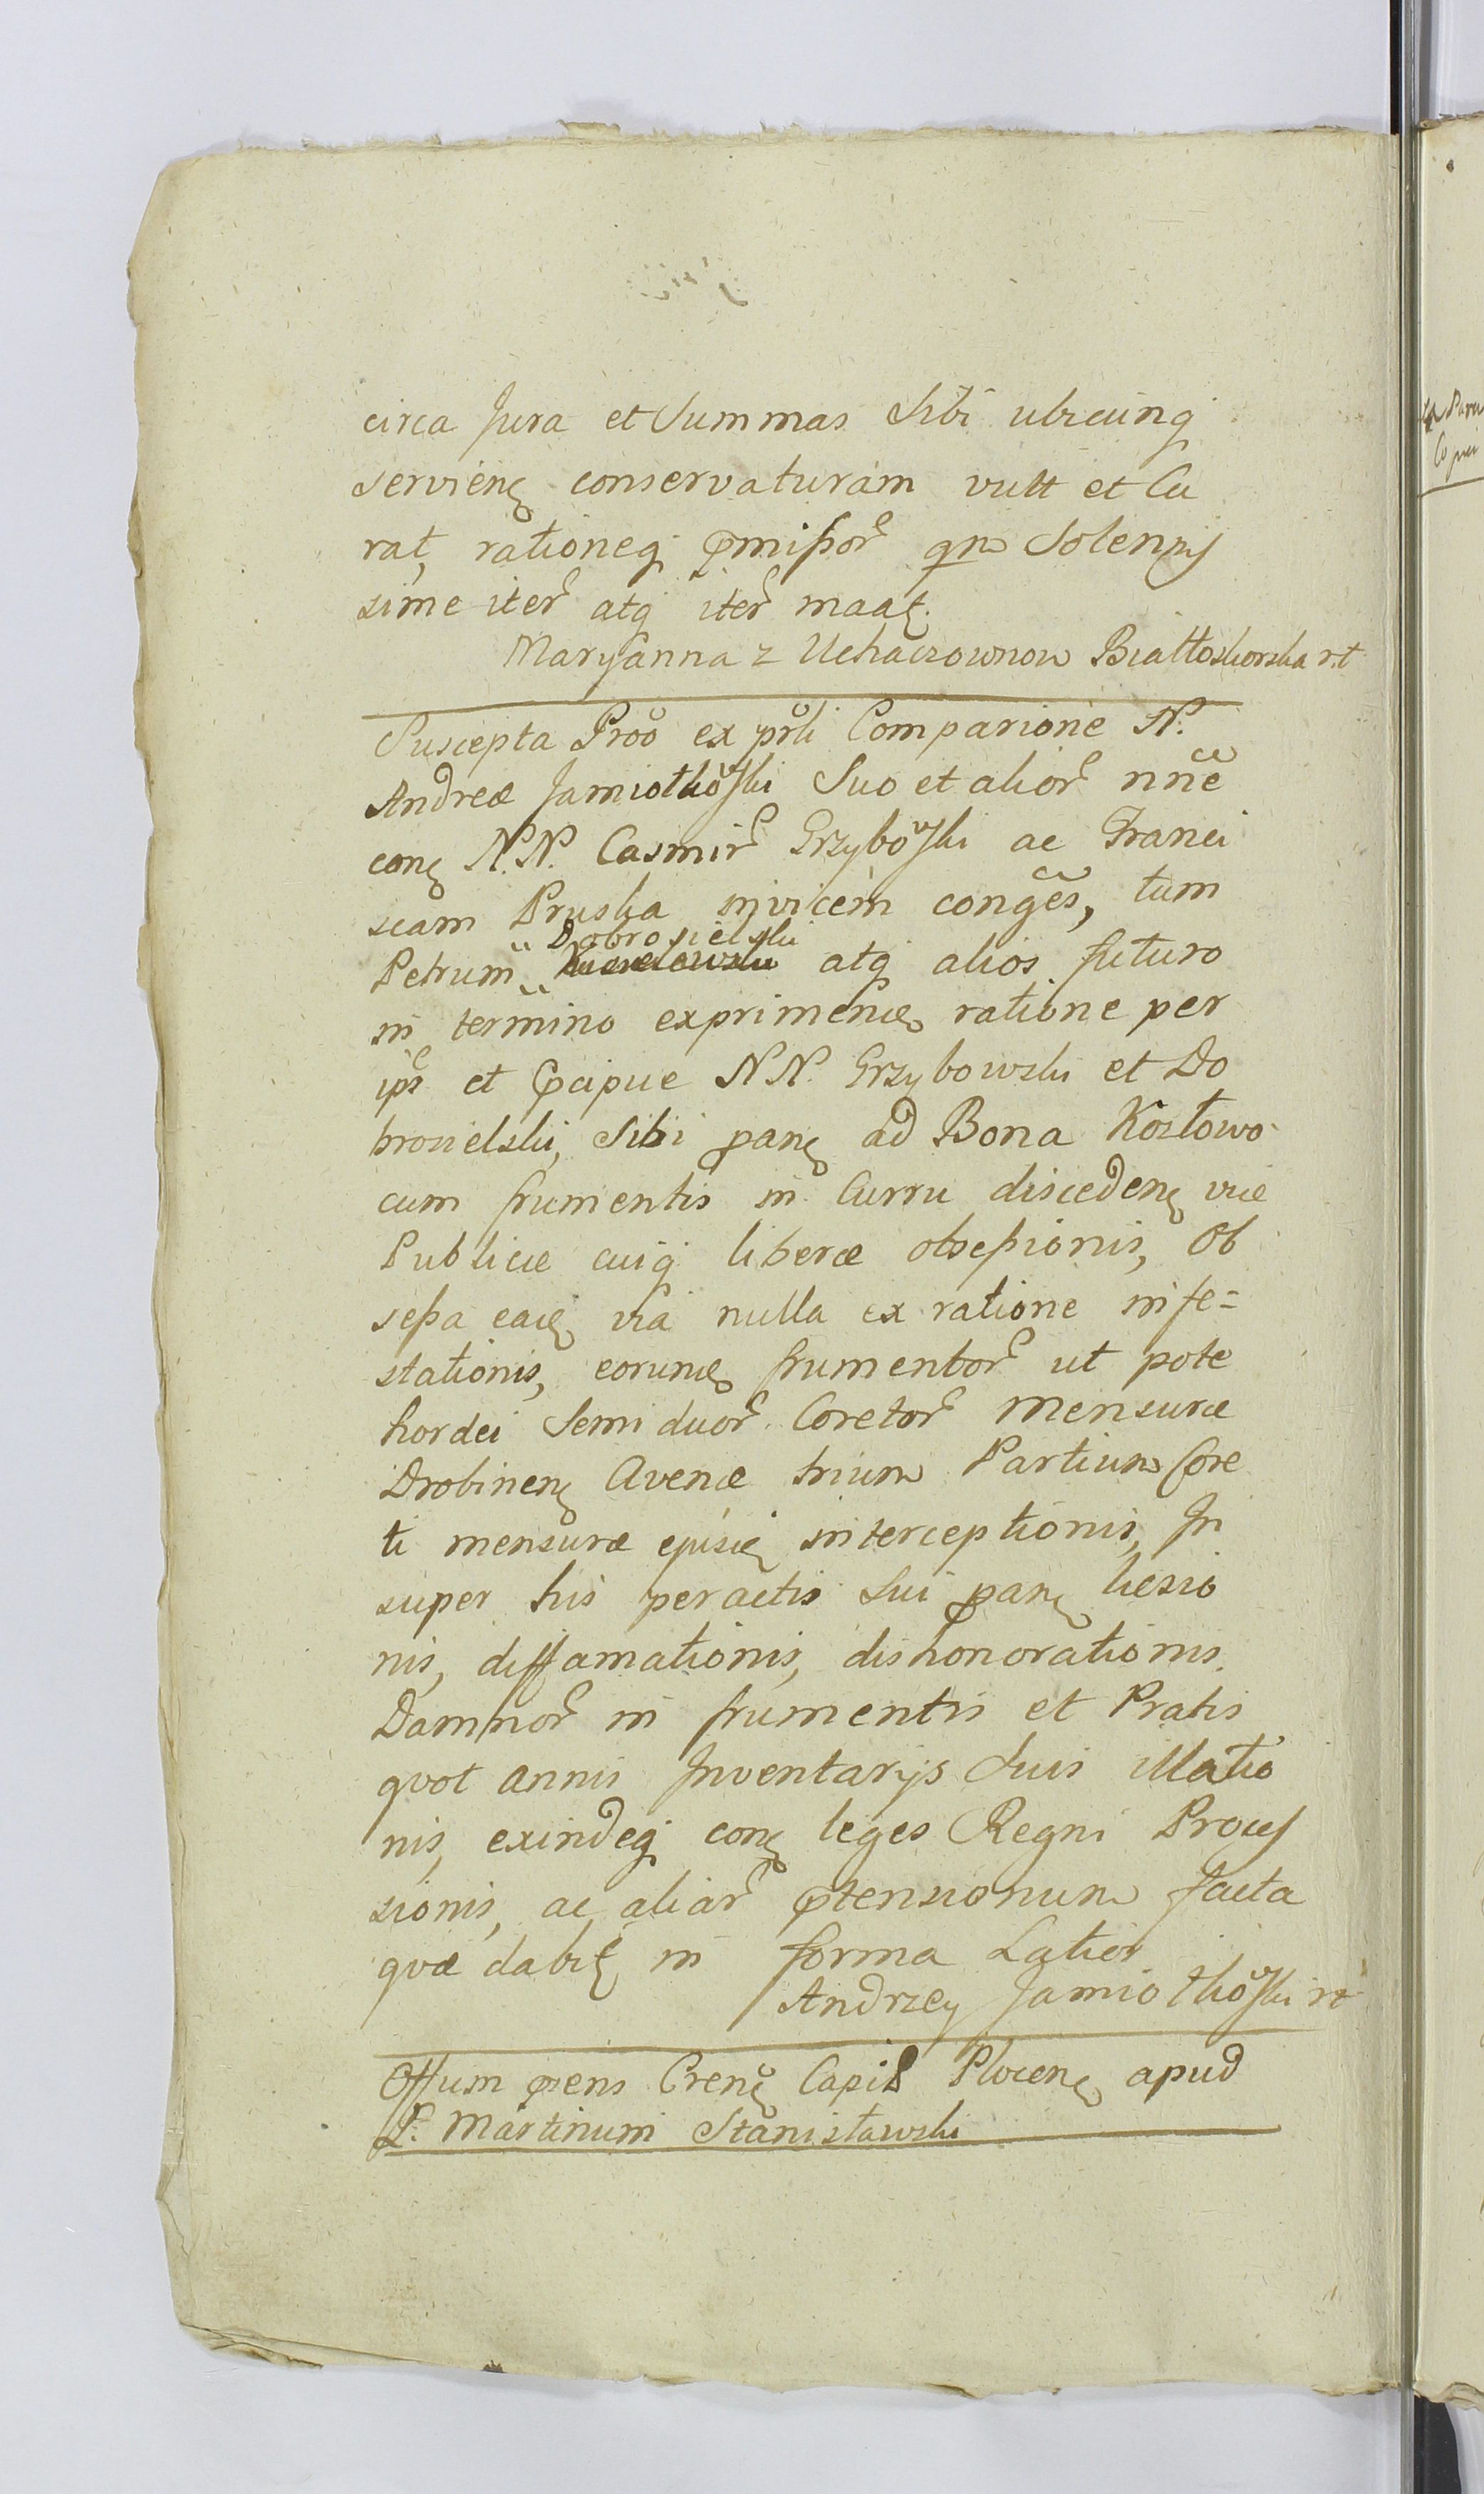 circa Jura et Summas Sibi ubicunq
servienę conservaturam vult et Cu
rat, rationeq pmißor qm Solennis
sime iter atq iter maaę.
Maryanna z Uchaczownow Białłoskorska rt
Suscepta Proo ex prli Comparione N.
Andreæ Jamiołkowski Suo et alior nnē
conę N.N. Casmir Grzybowski ac Franci
scam Pruska invicem congēs, tum
Dobrosielski
Petrum atq alios futuro
in termino exprimenę ratione per
ips et pcipue N.N. Grzybowski et Do
brosielski, Sibi panę ad Bona Kozłowo
cum frumentis in Curru discedenę viæ
Publicæ cuiq liberæ obseßionis, Ob
seßa eaę via nulla ex ratione infe=
stationis, eorunę frumentor ut pote
hordei Semi duor Coretor mensuræ
Drobinenę Avenæ trium Partium Core
ti mensuræ ejusę interceptionis, In
super his peractis Sui panę læsio
nis, diffamationis, dishonorationis
Damnor in frumentis et Pratis
quot annis Inventarijs Suis illatio
nis, exindeq conę leges Regni Proces
sionis, ac aliar ptensionum facta
quæ dabię in forma Latior
Andrzey Jamiołkowski rt
Offum pens Crenę Capit Plocenę apud
P. Martinum Stanisławski